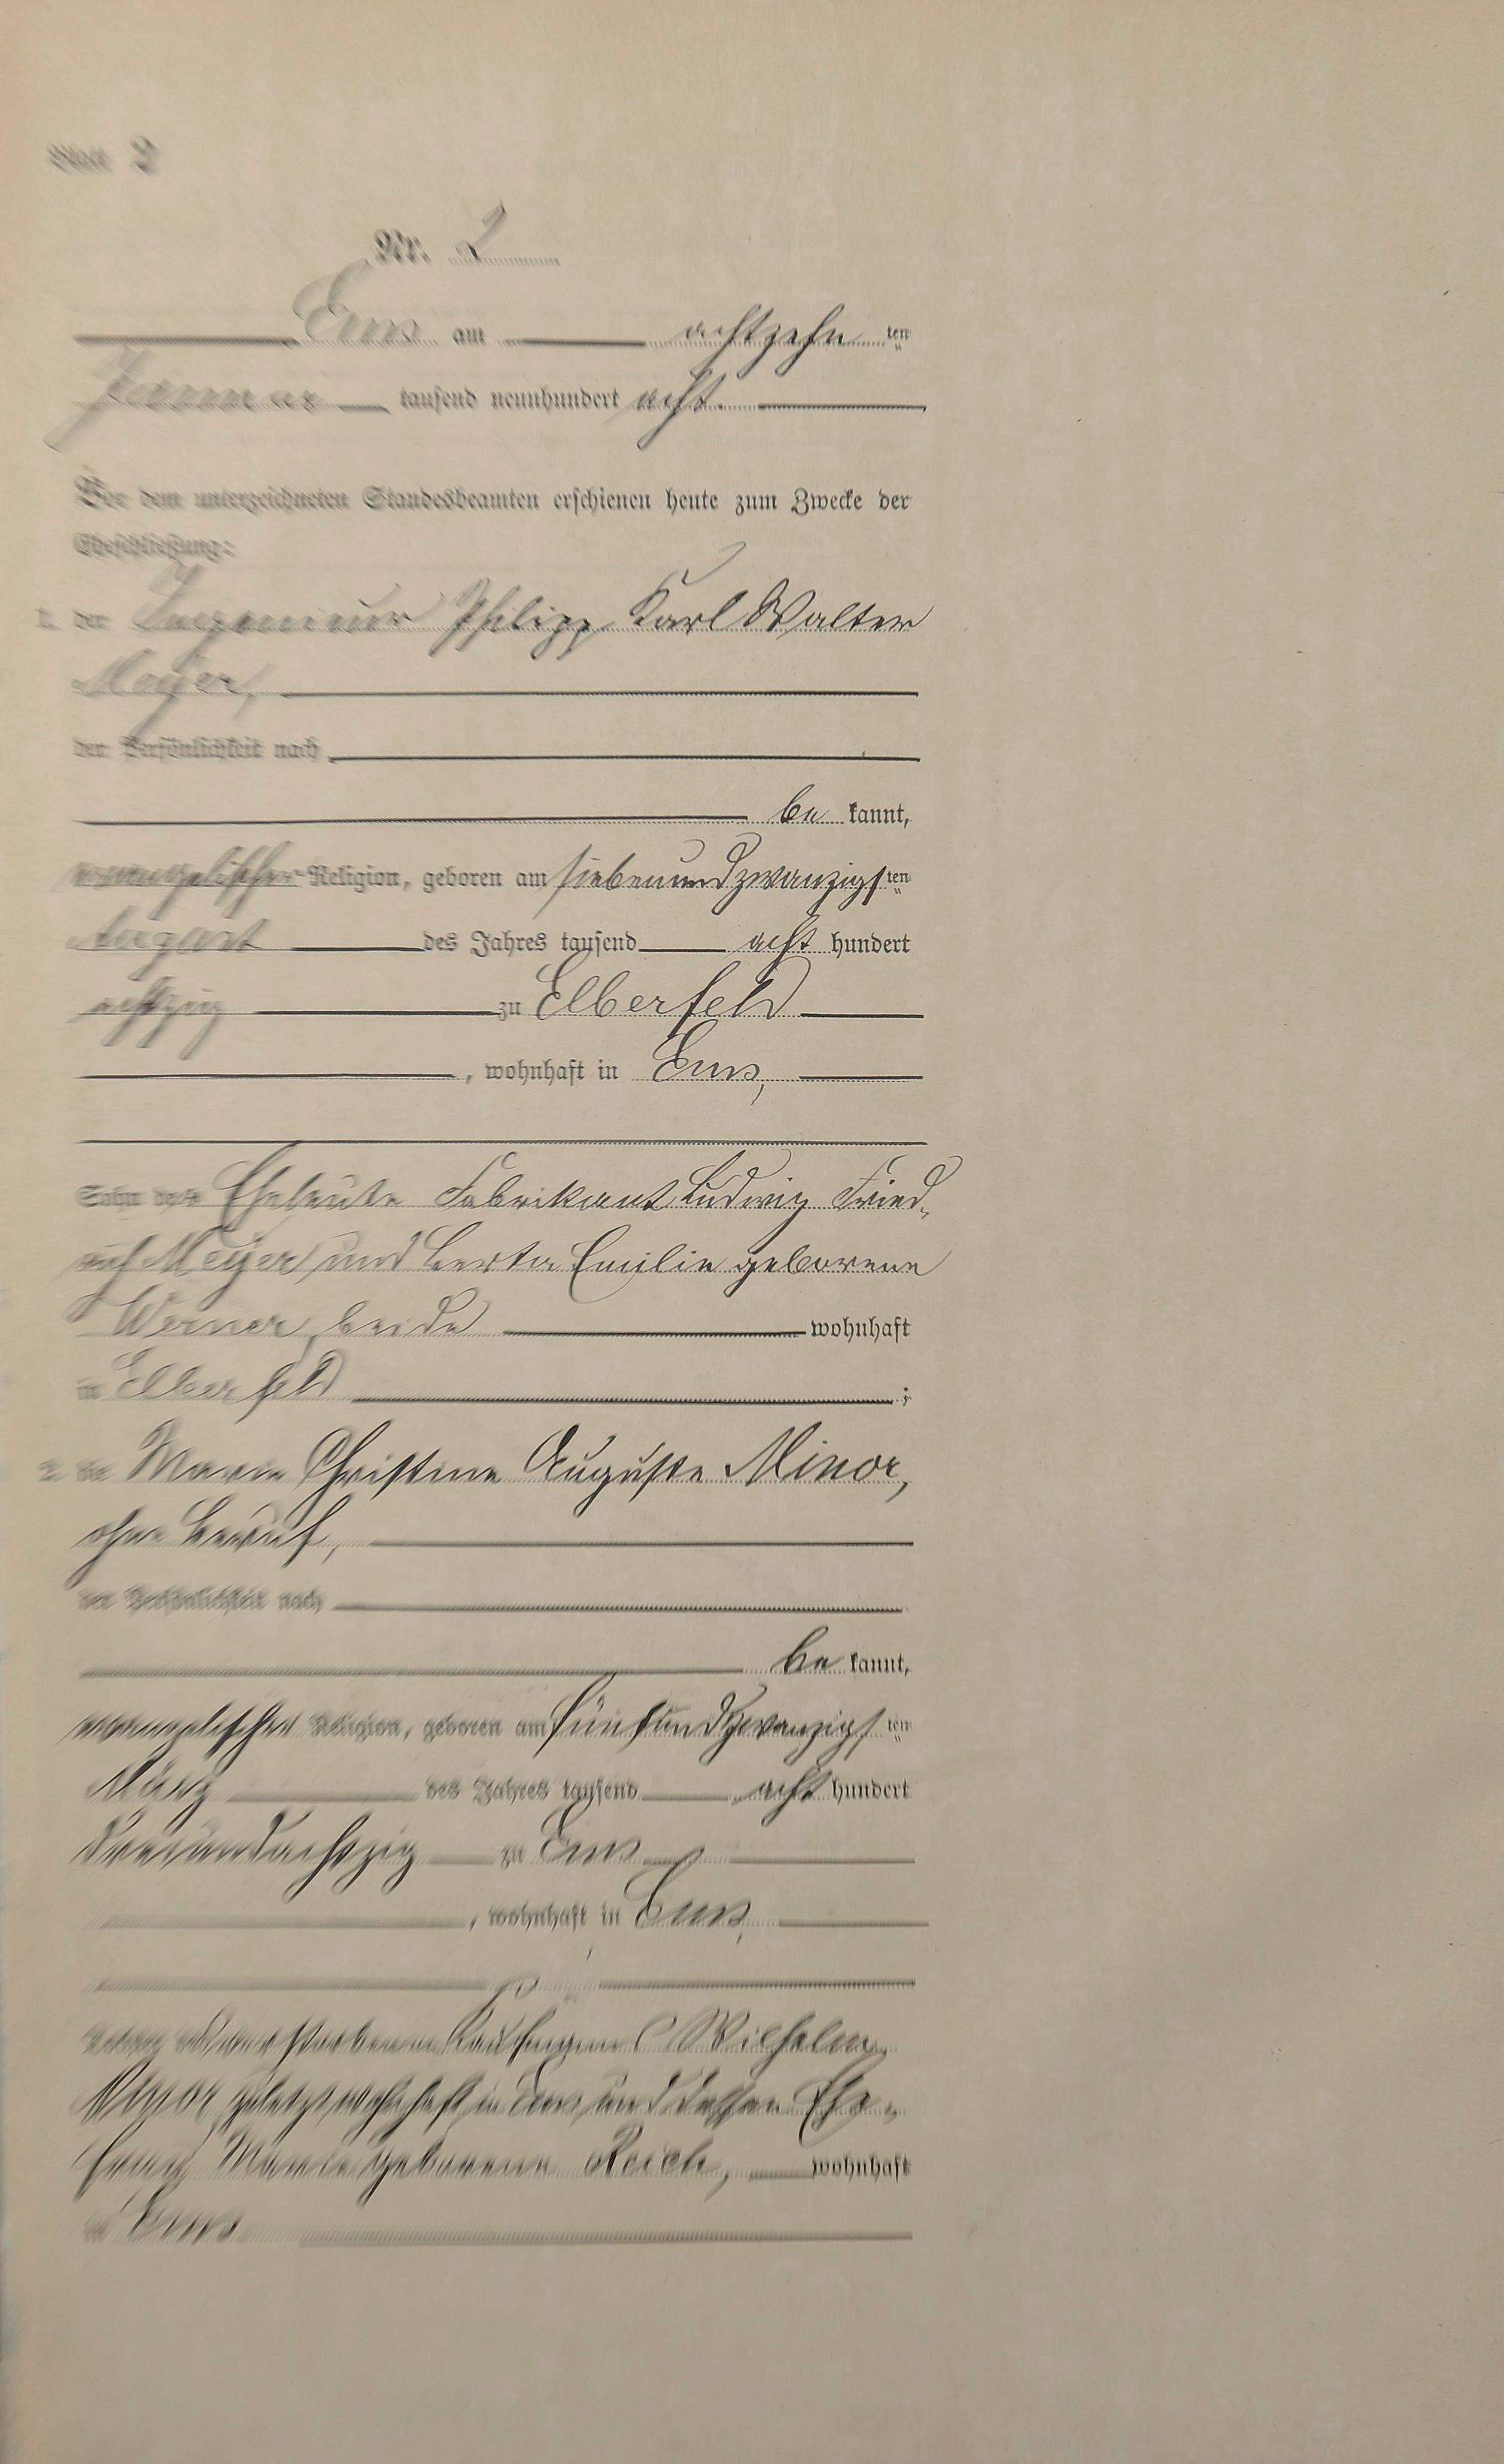 Blatt 2
Nr. 2
Ems am achtzehn ten
Januar tausend neunhundert acht.
Vor dem unterzeichneten Standesbeamten erschienen heute zum Zwecke der
Eheschließung:
1. der Ingenieur Philipp Karl Walter
Meyer,
der Persönlichkeit nach
be kannt,
evangelischer Religion, geboren am siebenundzwanzigs ten
August des Jahres tausend acht hundert
achtzig zu Elberfeld
, wohnhaft in Ems,
Sohn der Eheleute Fabrikant Ludwig Fried-
rich Meyer und Berta Emilie geborene
Werner, beide wohnhaft
in Elberfeld ;
2. die Marie Christine Auguste Minor,
ohne Beruf,
der Persönlichkeit nach
be kannt,
evangelischer Religion, geboren am fünfundzwanzigs ten
März des Jahres tausend acht hundert
dreiundachtzig zu Ems
, wohnhaft in Ems,
verstorbenen Wilhelm
Minor, zuletzt wohnhaft in Ems, und dessen Ehe-
frau Marie geborene Reich, wohnhaft
in Ems